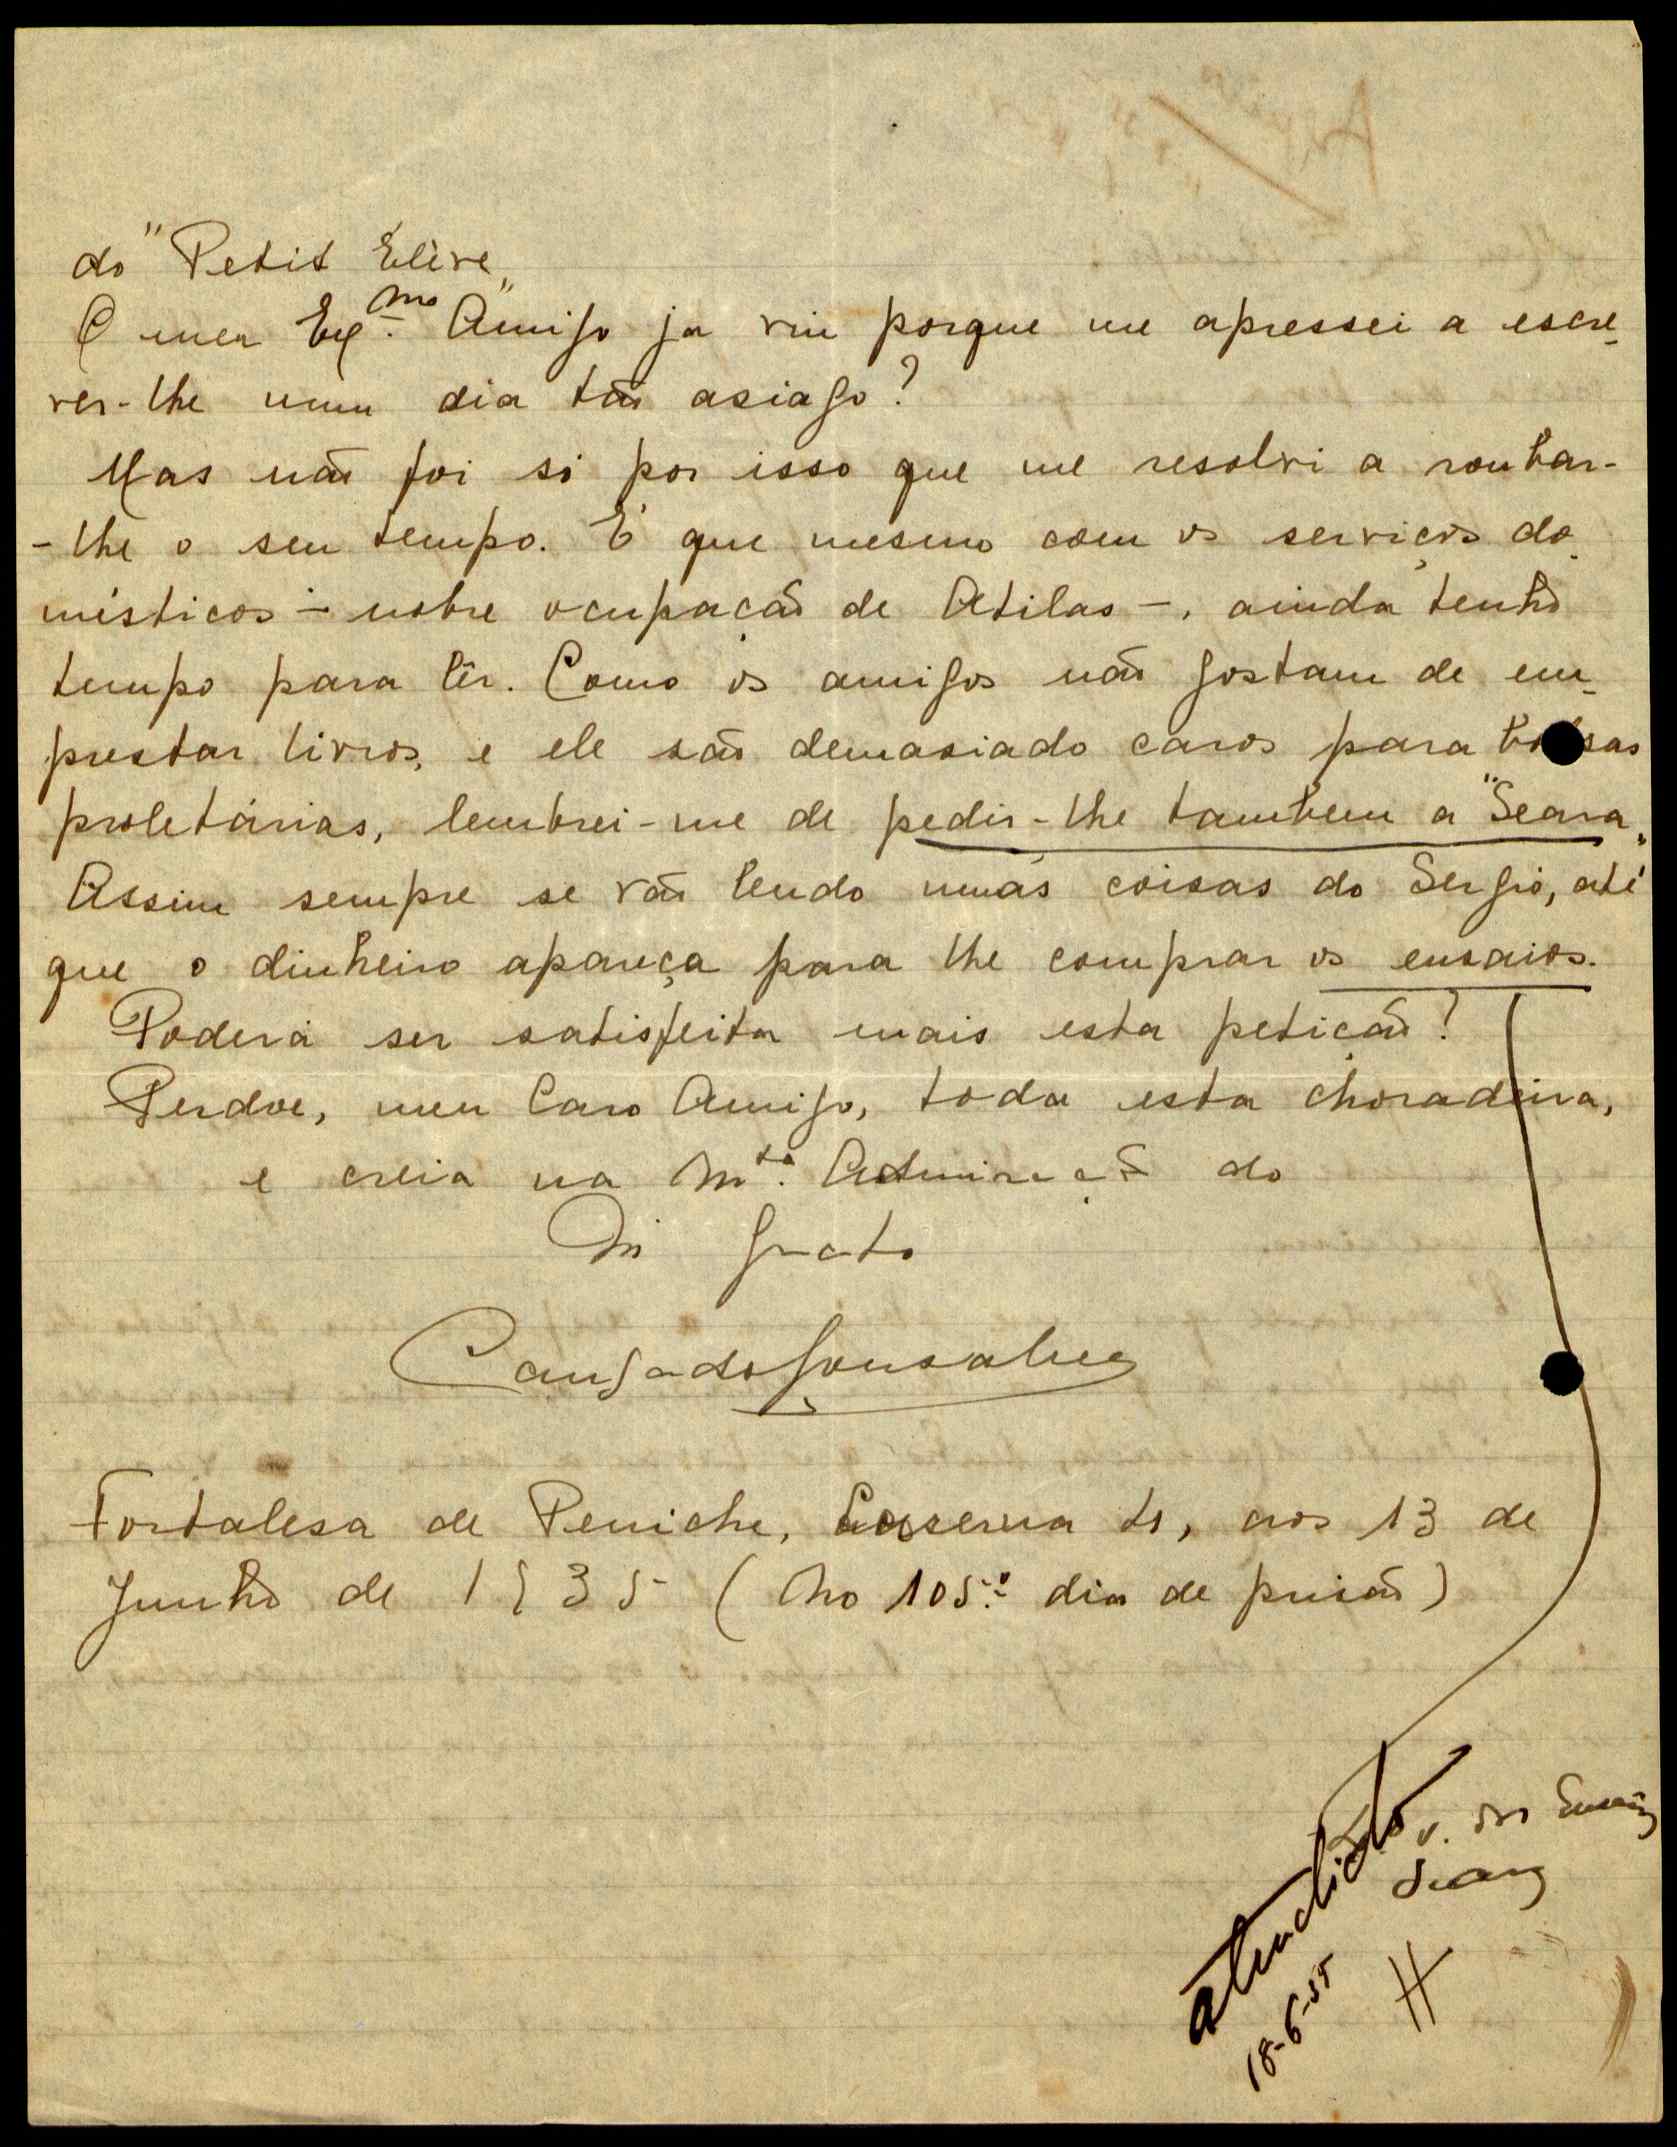 do "Petit Elève„
O meu Exmo. Amigo ja viu porque me apressei a escre-
ver-lhe num dia tão asiago?
Mas não foi só por isso que me resolvi a roubar-
-lhe o seu tempo. É que mesmo com os serviços do-
mésticos - nobre ocupação de Atilas -, ainda tenho
tempo para lêr. Como os amigos não gostam de em-
prestar livros, e ele são demasiado caros para bolsas
proletárias, lembrei-me de pedir-lhe tambem a "Seara„.
Assim sempre se vão lendo umas coisas do Sergio, até
que o dinheiro apareça para lhe comprar os ensaios.
Poderá ser satisfeita mais esta petição?
Perdoe, meu Caro Amigo, toda esta choradeira,
e creia na mta. Admiração do
Mt grato
Cansado Gonsalves
Fortalesa de Peniche, Caserna, aos 13 de
Junho de 1935 (No 105.º dia de prisão)
atendido
18-6-35
v. dos Ensaios
Seara
H